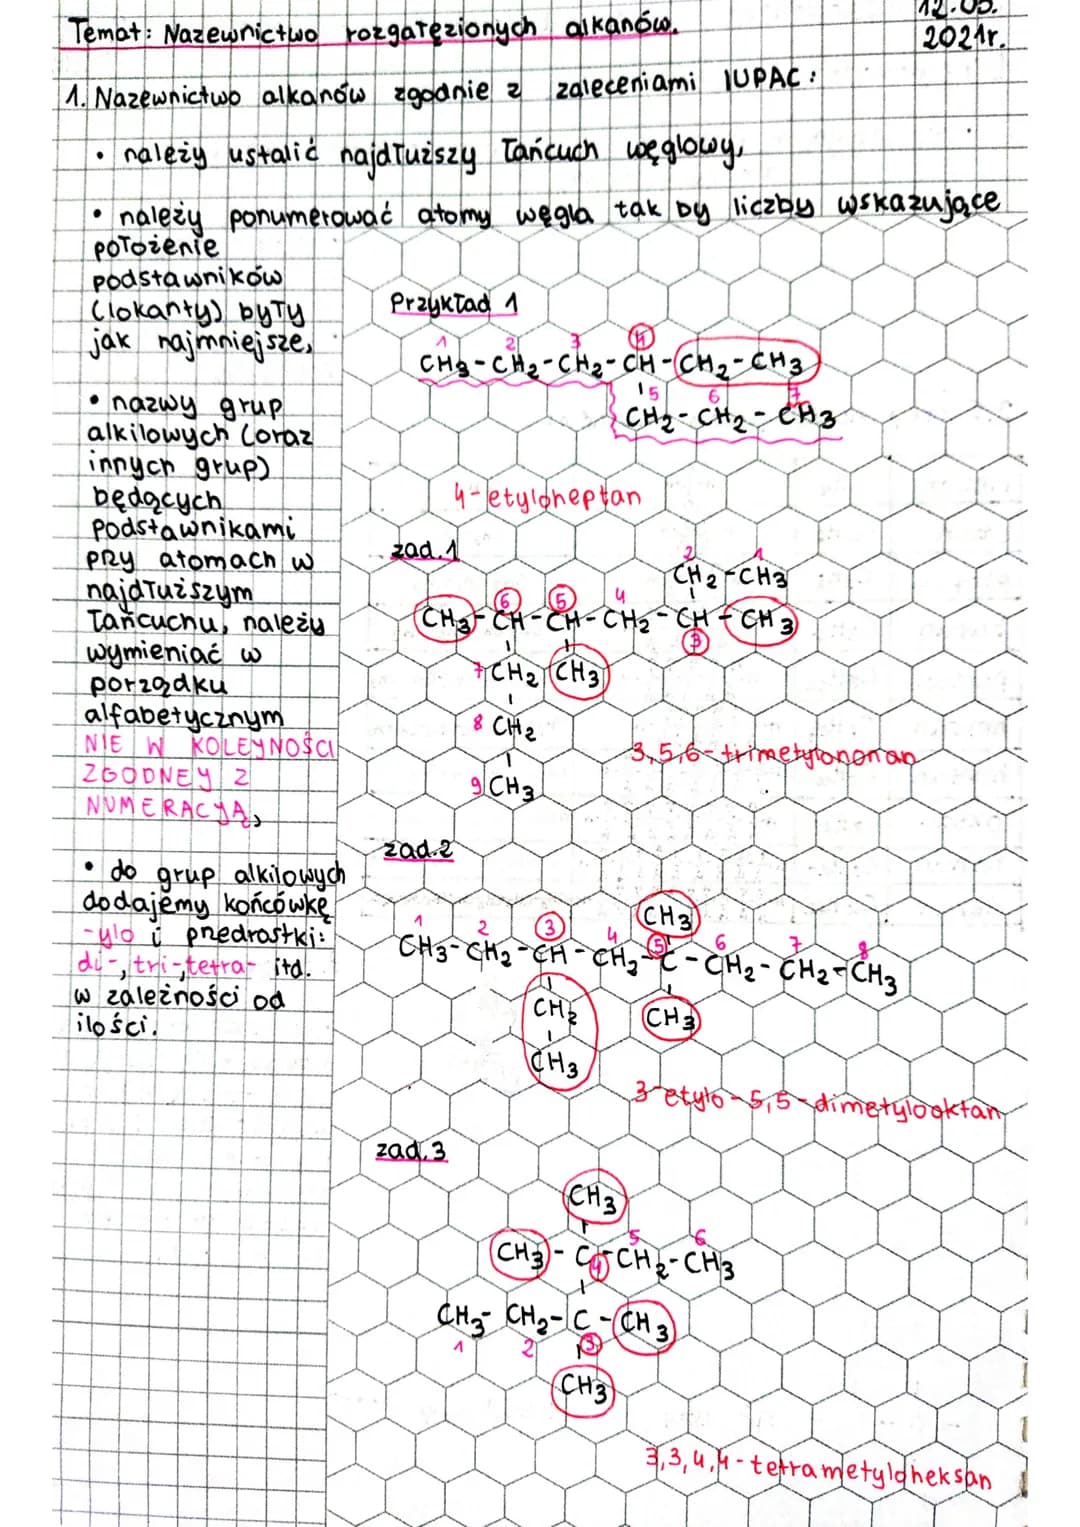 Temat: Nazewnictwo rozgałęzionych alkanów.
12.05.
2021r.
1. Nazewnictwo alkanów zgodnie z zaleceniami IUPAC:
• należy ustalić najdłuższy łańcuch węglowy,
• należy ponumerować atomy węgla tak by liczby wskazujące
położenie
podstawników
(lokanty) były
jak najmniejsze,
• nazwy grup
alkilowych (oraz
innych grup)
będących
podstawnikami
pry atomach w
najdłuższym
łańcuchu, należy
wymieniać w
porządku
alfabetycznym
NIE W KOLEJNOŚCI
ZGODNEJ Z
NUMERACJĄ,
• do grup alkilowych
dodajemy końcówkę
-ylo i przedrostki:
di-, tri-, tetra- itd.
w zależności od
ilości.
Przykład 1
1 2 3 4
CH3-CH2-CH2-CH-CH2-CH3
5 6 7
CH2-CH2-CH3
4-etyloheptan
zad.1
2 1
CH2-CH3
6 5 4
CH3-CH-CH-CH2-CH-CH3
3
7 CH2 CH3
8 CH2
9 CH3
3,5,6-trimetylononan
zad.2
CH3
1 2 3 4 5 6 7 8
CH3-CH2-CH-CH2-C-CH2-CH2-CH3
CH2 CH3
CH3
3-etylo-5,5-dimetylooktan
zad.3
CH3
5 6
CH3-C-CH2-CH3
4
CH3-CH2-C-CH3
1 2 3
CH3
3,3,4,4-tetrametyloheksan